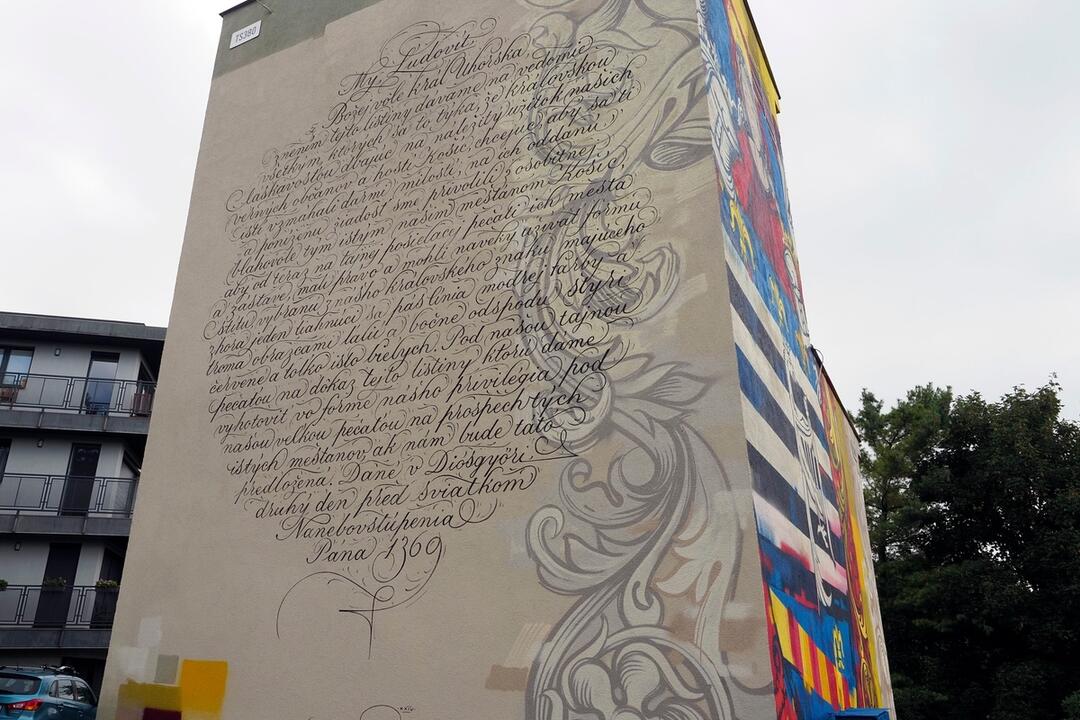 TS380
My, Ľudovít,
Božej vôle kráľ Uhorska,
znením tejto listiny dávame na vedomie
všetkým, ktorých sa to týka, že kráľovskou
láskavosťou dbajúc na náležitý úžitok našich
verných občanov a hostí Košíc, chcejúc, aby sa tí
istí vzmáhali darmi milosti, na ich oddanú
a poníženú žiadosť sme privolili z osobitnej
blahovôle tým istým našim mešťanom Košíc,
aby od teraz na tajnej posielacej pečati ich mesta
a zástave, mali právo a mohli naveky užívať formu
štítu vybranú z nášho kráľovského znaku majúceho
zhora jeden tiahnúci sa pás línia modrej farby a
troma obrazcami ľalií a bočne odspodu štyri
červené a toľko isto bielych. Pod našou tajnou
pečaťou na dôkaz tejto listiny ktorú dáme
vyhotoviť vo forme nášho privilégia pod
našou veľkou pečaťou na prospech tých
istých mešťanov ak nám bude táto
predložená. Dané v Diósgyőri
druhý deň pred sviatkom
Nanebovstúpenia
Pána 1369